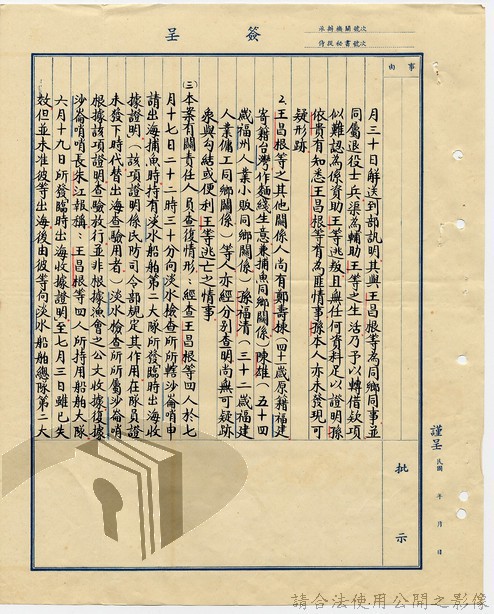 簽呈
承辦機關號次
侍從秘書號次
事由
月三十日解送到部訊明其與王昌根等為同鄉同事並
同屬退役士兵渠為輔助王等之生活乃予以轉借欵項
似難認為係資助王等逃叛且無任何資料足以證明孫
依貴有知悉王昌根等有為匪情事孫本人亦未發現可
疑形跡
2.王昌根等之其他關係人尚有鄭壽揀(四十一歲原籍福建
寄籍台灣作麵綫生意兼捕魚同鄉關係)、陳雄(五十四
歲福州人業小販同鄉關係)孫福清(三十二歲福建
人業傭工同鄉關係)等人亦經分別查明尚無可疑跡
象與勾結或便利王等逃亡之情事
㈢本案有關責任人員查復情形:經查王昌根等四人於七
月十七日二十二時三十分向淡水檢查所所轄沙崙哨申
請出海捕魚時持有淡水船舶第二大隊所發臨時出海收
據證明(該項證明係民防司令部規定其作用在隊員證
未發下時代替出海查驗用者)淡水檢查所所屬沙崙哨
根據該項證明查驗放行並非根據漁會之公文收據復據
沙崙哨哨長朱江報稱:王昌根等四人所持用船舶大隊
六月十九日所發臨時出海收據證明至七月三日雖已失
效但並未准彼等出海後由彼等向淡水船舶總隊第二大
批示
謹呈
民國 年 月 日
請合法使用公開之影像